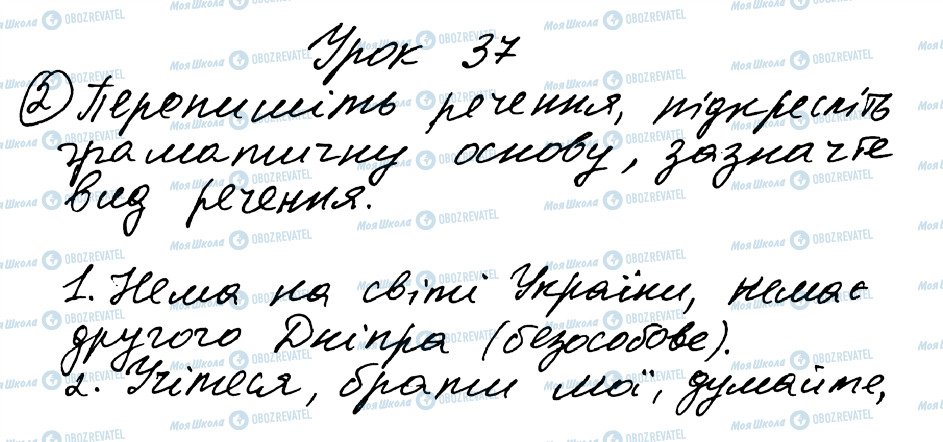 Урок 37
2 Перепишіть речення, підкресліть
граматичну основу, зазначте
вид речення.
1. Нема на світі України, немає
другого Дніпра (безособове).
2. Учітеся, брати мої, думайте,